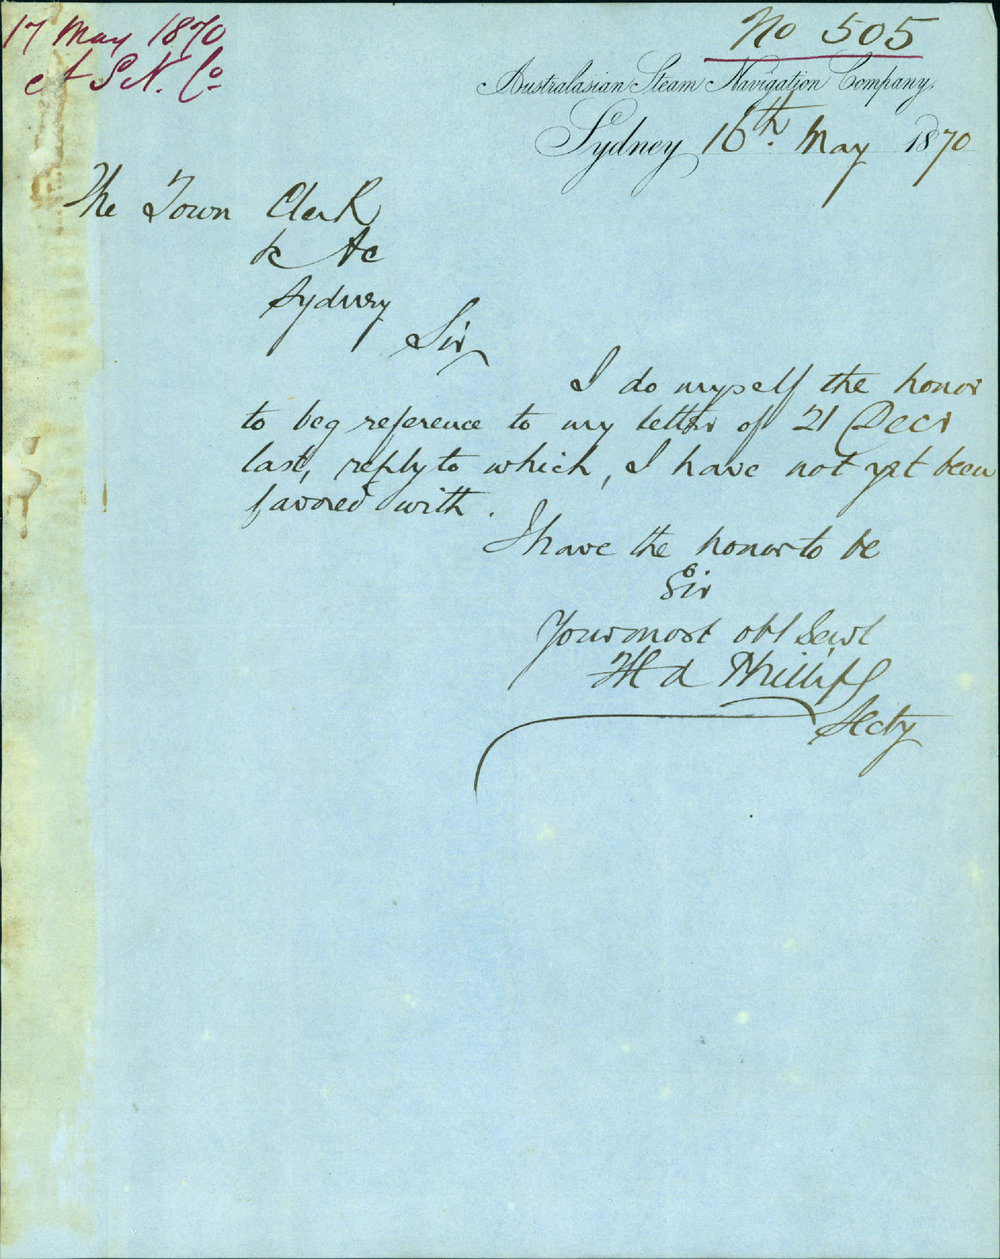 17 May 1870
A S N. Co
No 505
Australasian Steam Navigation Company.
Sydney 16th. May 1870
The Town Clerk
&c &c
Sydney
Sir
I do myself the honor
to beg reference to my letter of 21 Decr
last, reply to which, I have not yet been
favored with.
I have the honor to be
Sir
Your most obt Servt
Phillips
Secty